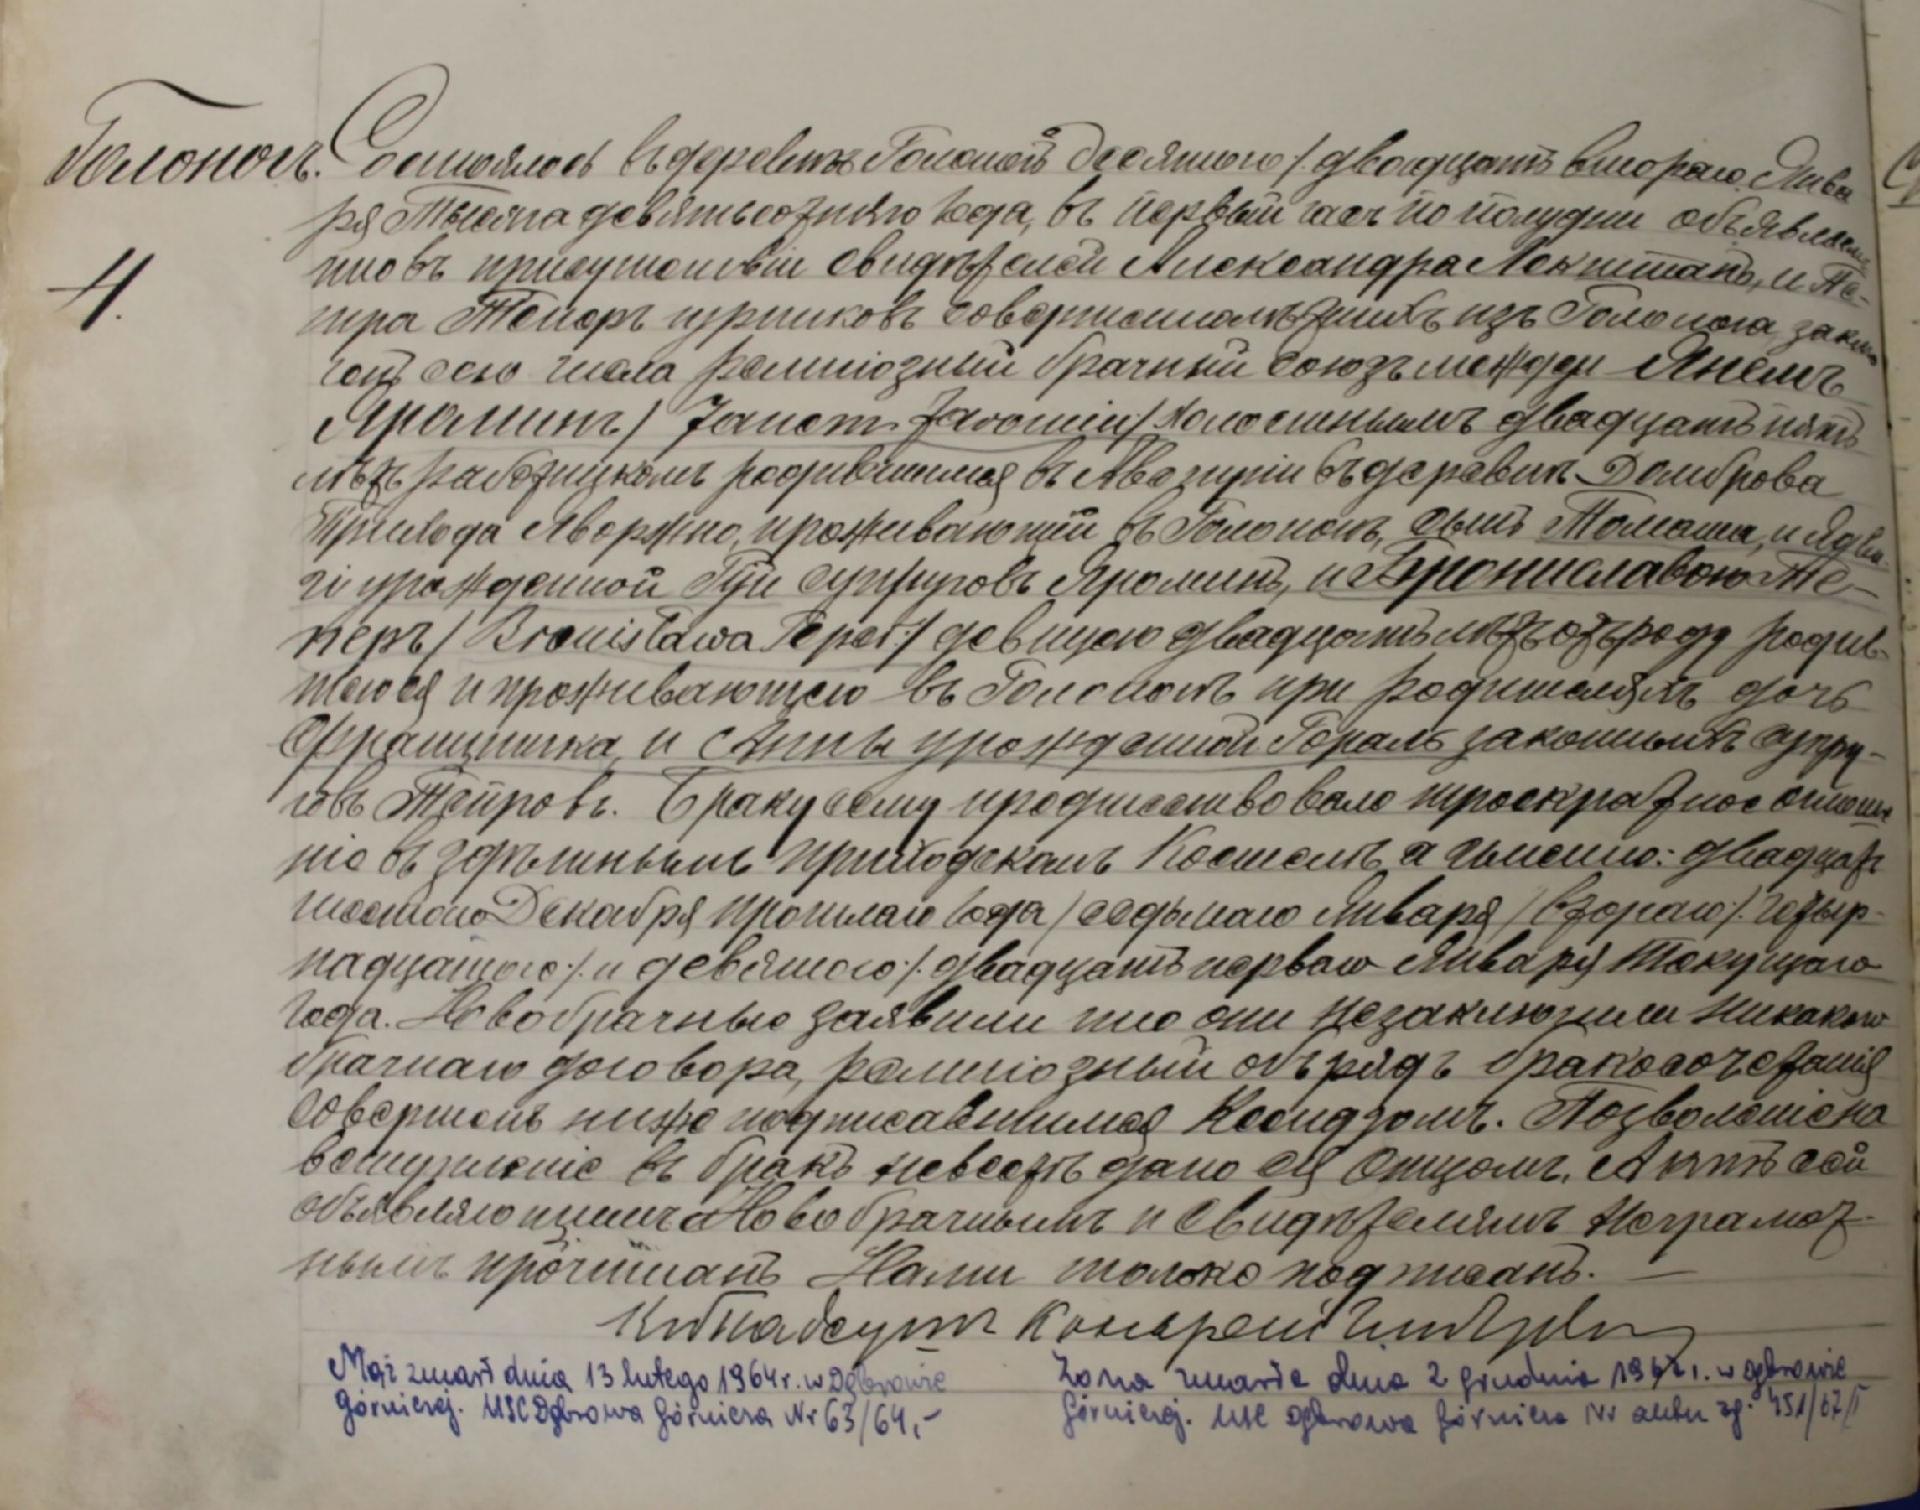 Голоногъ. Состоялось въ деревнѣ Голоногъ десятого /: двадцать второго Янва
4. ря Тысяча девятьсотнаго года, въ первый часъ по полудни объявляемъ
что въ присутствіи свидѣтелей Александра и Пе-
тра Теперъ горниковъ совершеннолѣтнихъ изъ Голонога, заклю
ченъ сего числа религіозный брачный союзъ между Янемъ
Яроминъ / Janem Jaromin / холостымъ двадцать пять
лѣтъ работникомъ родившимся въ Австріи въ деревнѣ Домброва
Прихода Яворжно, проживающій въ Голоногѣ, сынъ Томаша, и Ядви
ги урожденной супруговъ Яроминъ, и Брониславою Те-
перъ / Bronisława Teper :/ девицею двадцать лѣтъ отъ роду родив-
шеюся и проживающею въ Голоногѣ при родителяхъ дочь
Францишка, и Анны урожденной Гораль законныхъ супру-
говъ Теперовъ. Браку сему предшествовало троекратное оглаше
ніе въ здѣшнымъ приходскомъ Костелѣ а именно: двадцать
шестого Декабря прошлаго года / седьмаго Января / второго /: четыр-
надцатого :/ и девятого /: двадцать перваго Января Текущаго
года. Новобрачные заявили что они незаключили никакого
брачнаго договора, религіозный обърядъ бракосочетанія
совершенъ ниже подписавшимся Ксендзомъ. Позволеніе на
вступленіе въ бракъ невестѣ дано ея Отцомъ. Актъ сей
объявляющимъ Новобрачнымъ и Свидѣтелямъ Неграмот-
нымъ прочитанъ Нами только подписанъ. —
Mąż zmarł dnia 13 lutego 1964 r. w Dąbrowie
Górniczej. USC Dąbrowa Górnicza Nr 63/64,-
Żona zmarła dnia 2 grudnia 1967 r. w Dąbrowie
Górniczej. USC Dąbrowa Górnicza Nr aktu zg. 451/67/I